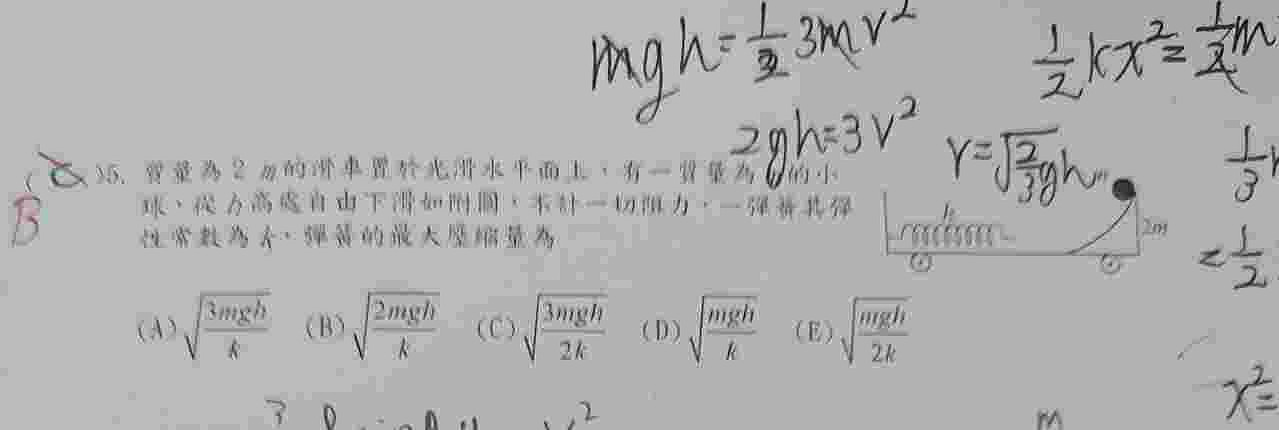 mgh = 1/2 3mv²
1/2 kx² = 1/2 m
2gh = 3v²
v = √(2/3 gh)
1/3
= 1/2
x² =
B
( )5. 質量為 2 m 的滑車置於光滑水平面上,有一質量為 m 的小
球,從 h 高處自由下滑如附圖,不計一切阻力,一彈簧其彈
性常數為 k,彈簧的最大壓縮量為
k
m
2m
(A) √(3mgh/k) (B) √(2mgh/k) (C) √(3mgh/2k) (D) √(mgh/k) (E) √(mgh/2k)
m